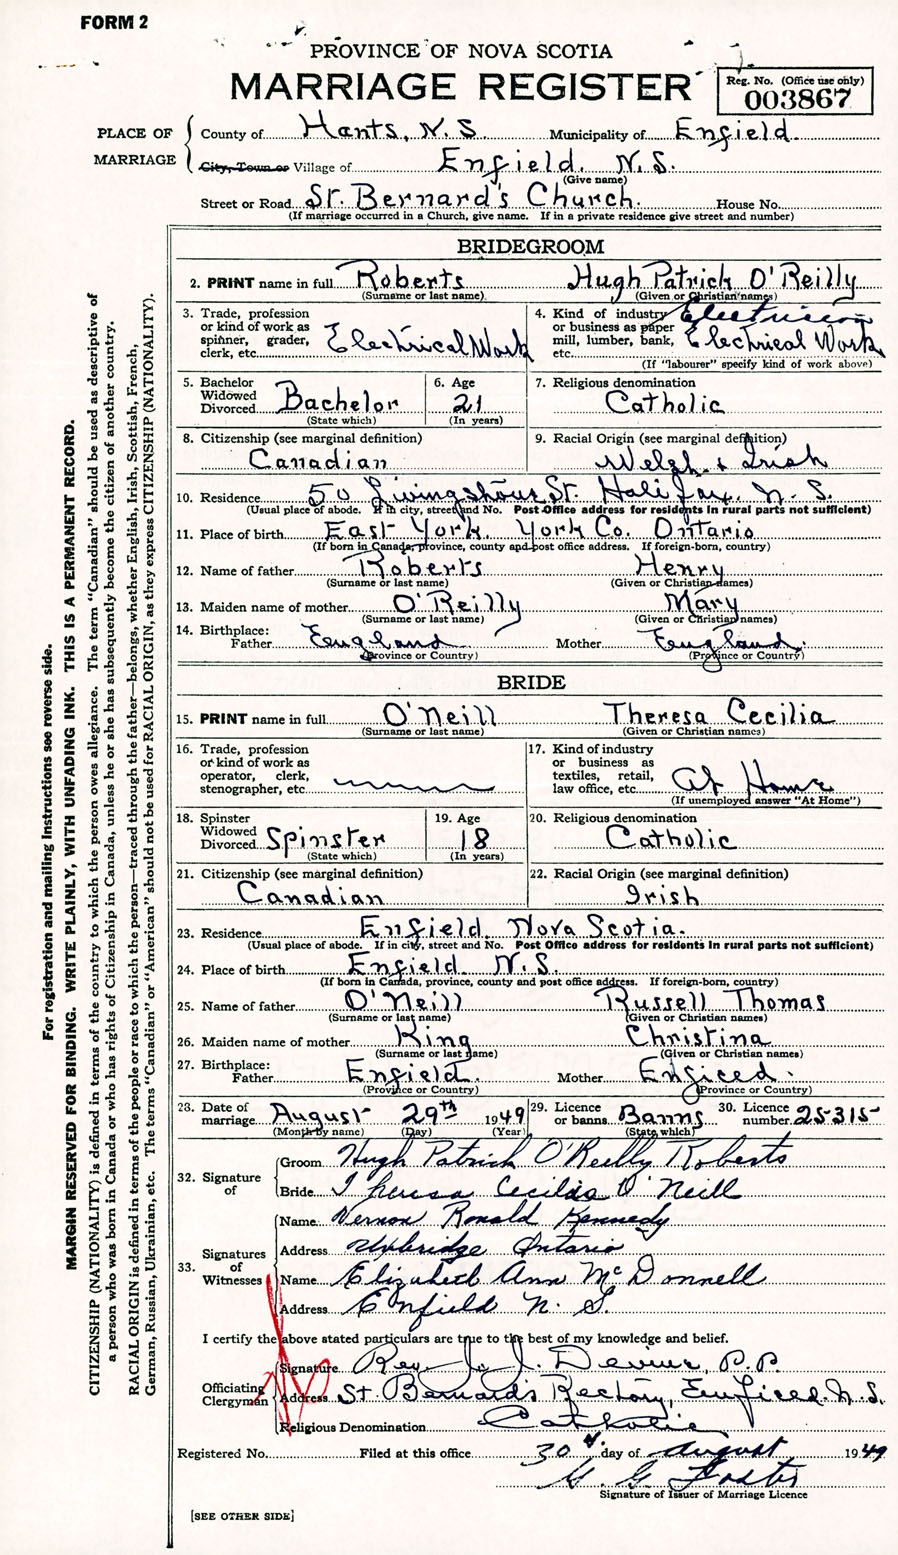 FORM 2
PROVINCE OF NOVA SCOTIA
MARRIAGE REGISTER
Reg. No. (Office use only)
003867
PLACE OF MARRIAGE
County of Hants, N.S. Municipality of Enfield
City, Town or Village of Enfield, N.S.
(Give name)
Street or Road St. Bernard's Church. House No.
(If marriage occurred in a Church, give name. If in a private residence give street and number)
BRIDEGROOM
2. PRINT name in full Roberts Hugh Patrick O'Reilly
(Surname or last name) (Given or Christian names)
3. Trade, profession or kind of work as spinner, grader, clerk, etc. Electrical Work
4. Kind of industry or business as paper mill, lumber, bank, etc. Electrician Electrical Work
(If "labourer" specify kind of work above)
5. Bachelor Widowed Divorced Bachelor
(State which)
6. Age 21
(In years)
7. Religious denomination Catholic
8. Citizenship (see marginal definition) Canadian
9. Racial Origin (see marginal definition) Welsh & Irish
10. Residence 50 St. Halifax, N.S.
(Usual place of abode. If in city, street and No. Post Office address for residents in rural parts not sufficient)
11. Place of birth East York, York Co. Ontario
(If born in Canada, province, county and post office address. If foreign-born, country)
12. Name of father Roberts Henry
(Surname or last name) (Given or Christian names)
13. Maiden name of mother O'Reilly Mary
(Surname or last name) (Given or Christian names)
14. Birthplace: Father England Mother England.
(Province or Country) (Province or Country)
BRIDE
15. PRINT name in full O'Neill Theresa Cecilia
(Surname or last name) (Given or Christian names)
16. Trade, profession or kind of work as operator, clerk, stenographer, etc.
17. Kind of industry or business as textiles, retail, law office, etc. At Home
(If unemployed answer "At Home")
18. Spinster Widowed Divorced Spinster
(State which)
19. Age 18
(In years)
20. Religious denomination Catholic
21. Citizenship (see marginal definition) Canadian
22. Racial Origin (see marginal definition) Irish
23. Residence Enfield Nova Scotia.
(Usual place of abode. If in city, street and No. Post Office address for residents in rural parts not sufficient)
24. Place of birth Enfield N.S.
(If born in Canada, province, county and post office address. If foreign-born, country)
25. Name of father O'Neill Russell Thomas
(Surname or last name) (Given or Christian names)
26. Maiden name of mother King Christina
(Surname or last name) (Given or Christian names)
27. Birthplace: Father Enfield. Mother Enficed.
(Province or Country) (Province or Country)
28. Date of marriage August 29th 1949
(Month by name) (Day) (Year)
29. Licence or banns Banns
(State which)
30. Licence number 25315
32. Signature of
Groom Hugh Patrick O'Reilly Roberts
Bride Theresa Cecilia O'Neill
33. Signatures of Witnesses
Name Vernon Ronald Kennedy
Address Uxbridge Ontario
Name Elizabeth Ann McDonnell
Address Enfield N.S.
I certify the above stated particulars are true to the best of my knowledge and belief.
Officiating Clergyman
Signature Rev. J. J. Devine, P.P.
Address St. Bernard's Rectory, Enficed. N.S.
Religious Denomination Catholic
Registered No. Filed at this office 30 day of August 1949
G. G. Foster
Signature of Issuer of Marriage Licence
[SEE OTHER SIDE]
For registration and mailing instructions see reverse side.
MARGIN RESERVED FOR BINDING. WRITE PLAINLY, WITH UNFADING INK. THIS IS A PERMANENT RECORD.
CITIZENSHIP (NATIONALITY) is defined in terms of the country to which the person owes allegiance. The term "Canadian" should be used as descriptive of
a person who was born in Canada or who has rights of Citizenship in Canada, unless he or she has subsequently become the citizen of another country.
RACIAL ORIGIN is defined in terms of the people or race to which the person—traced through the father—belongs, whether English, Irish, Scottish, French,
German, Russian, Ukrainian, etc. The terms "Canadian" or "American" should not be used for RACIAL ORIGIN, as they express CITIZENSHIP (NATIONALITY).